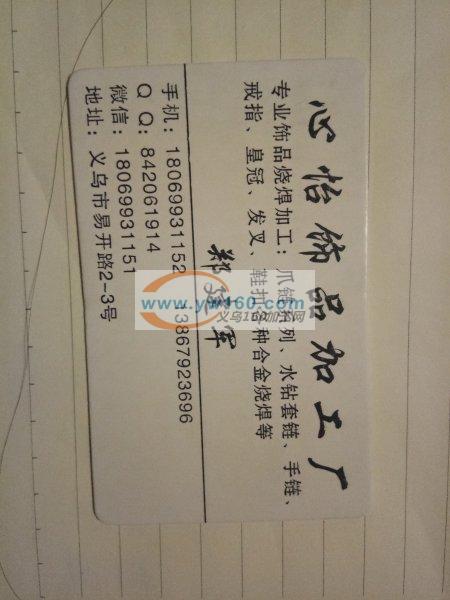 心怡饰品加工厂
专业饰品烧焊加工：爪链系列、水钻套链、手链、
戒指、皇冠、发叉、鞋扣各种合金烧焊等
郑建军
手机：18069931152 13867923696
Q Q：842061914
微信：18069931151
地址：义乌市易开路2-3号
www.yw160.com
义乌160加工网